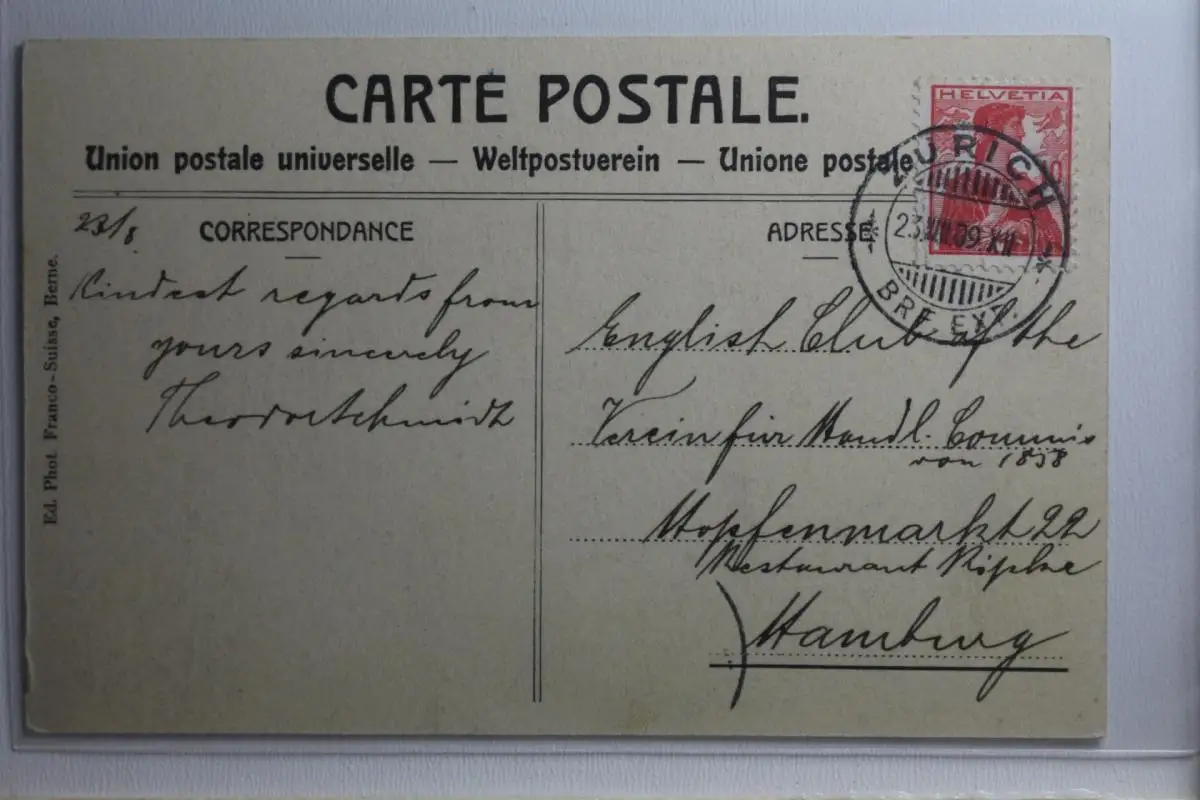 CARTE POSTALE.
Union postale universelle — Weltpostverein — Unione postale
HELVETIA
ZÜRICH
23.VIII.09.XII
BRF. EXP.
23/8
CORRESPONDANCE
Kindest regards from
yours sincerely
Theodor Schmidt
Ed. Phot. Franco-Suisse, Berne.
ADRESSE
English Club of the
Verein für Handl. Commis
von 1858
Hopfenmarkt 22
Restaurant Ripke
Hamburg